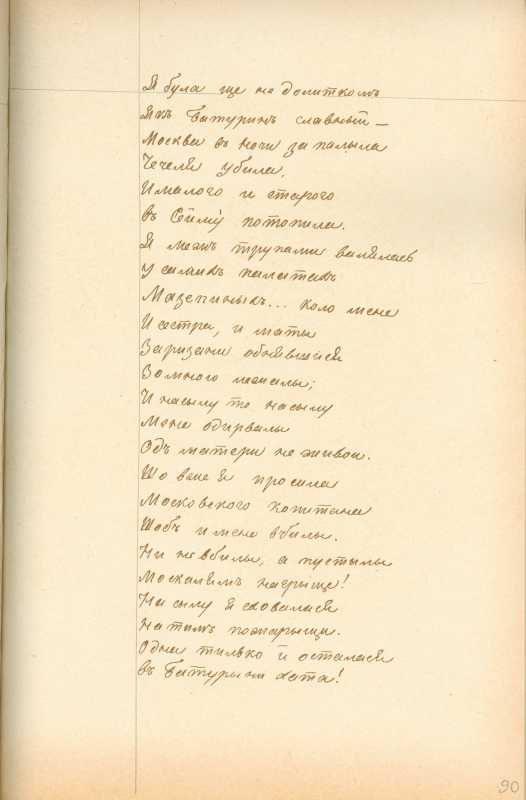 Я була ще не долиткомъ
Якъ Батуринъ славный —
Москва въ ночи запалыла
Чечеля убила,
И малого и старого
въ Сеймѝ потопила.
Я межъ трупами валялась
У самихъ палатахъ
Мазепиныхъ... коло мене
И сестра, и маты
Заризани обнявшися
Зо мною лежалы;
И насылу то насылу
Мене одирвалы
Одъ матери неживои.
Що вже я просила
Московского копитана
Щобъ и мене вбилы.
Ни не вбилы, а пустылы
Москалямъ на грыще!
На силу я сховалася
На тимъ пожарыщи.
Одна тилько й осталася
въ Батурыни хата!
90